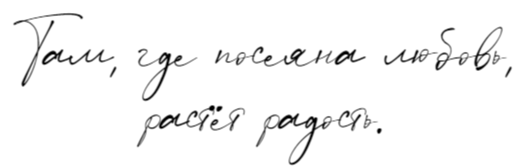 Там, где посеяна любовь,
растёт радость.